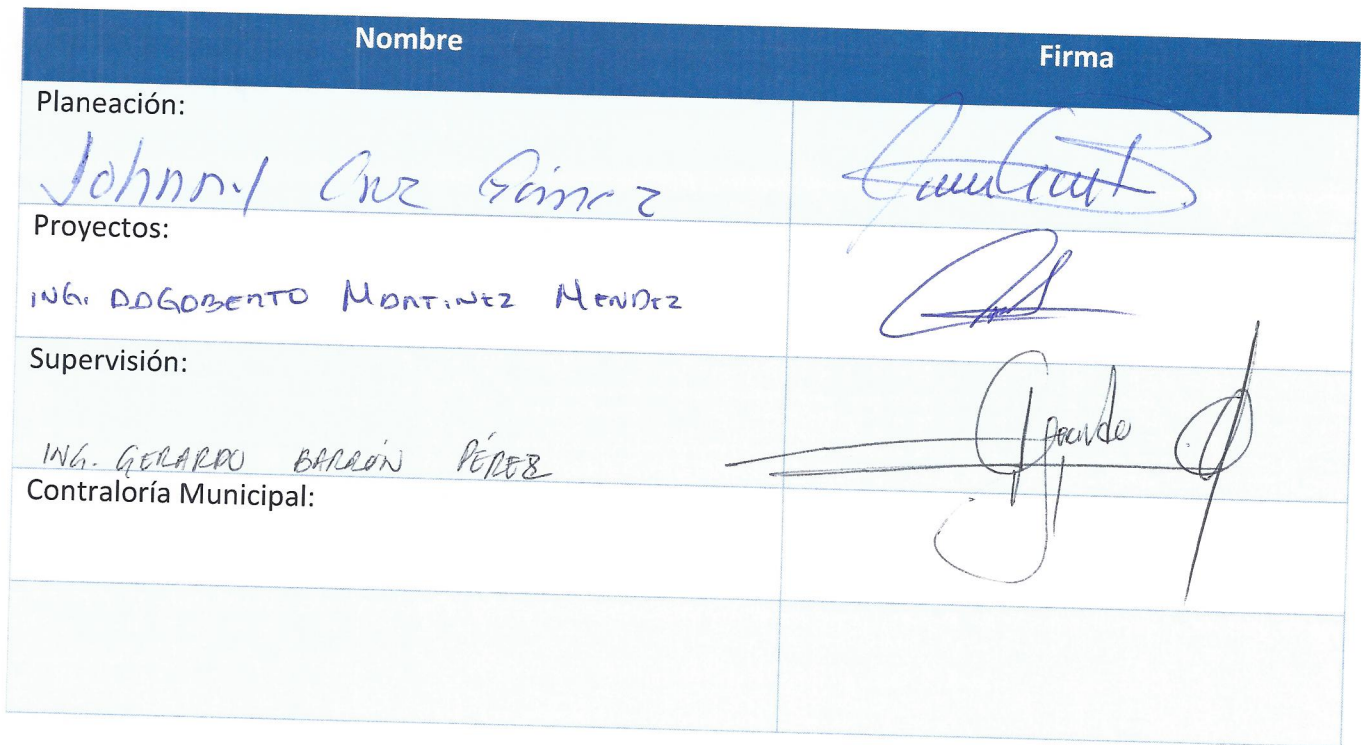 Nombre Firma
Planeación:
Johnny Cruz Gómez
Proyectos:
ING. DAGOBERTO MARTINEZ MENDEZ
Supervisión:
ING. GERARDO BARRÓN PÉREZ
Contraloría Municipal: